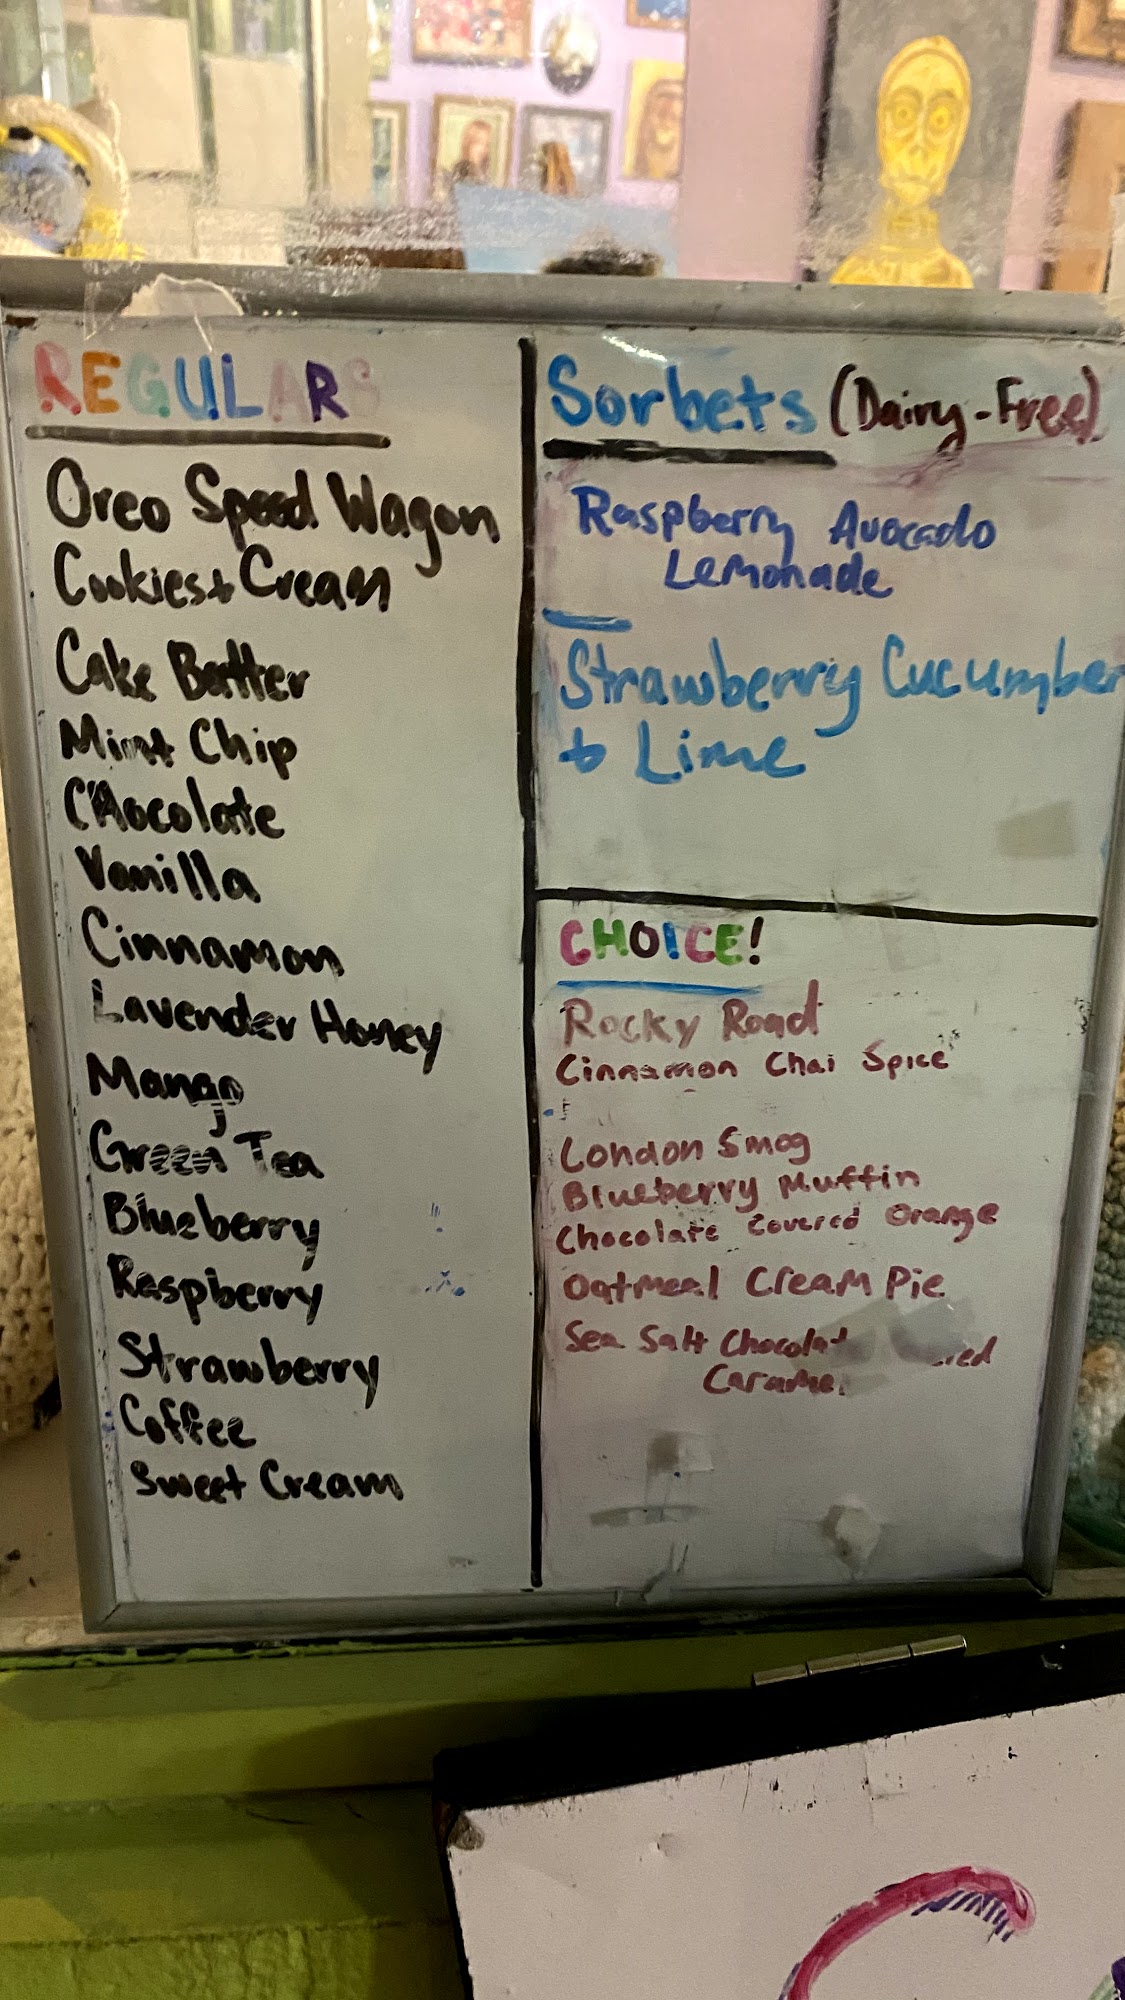 REGULARS
Oreo Speed Wagon
Cookies + Cream
Cake Batter
Mint Chip
CHocolate
Vanilla
Cinnamon
Lavender Honey
Mango
Green Tea
Blueberry
Raspberry
Strawberry
Coffee
Sweet Cream
Sorbets (Dairy-Free)
Raspberry Avocado
Lemonade
Strawberry Cucumber
+ Lime
CHOICE!
Rocky Road
Cinnamon Chai Spice
London Smog
Blueberry Muffin
Chocolate Covered Orange
Oatmeal Cream Pie
Sea Salt Chocolat
Carame